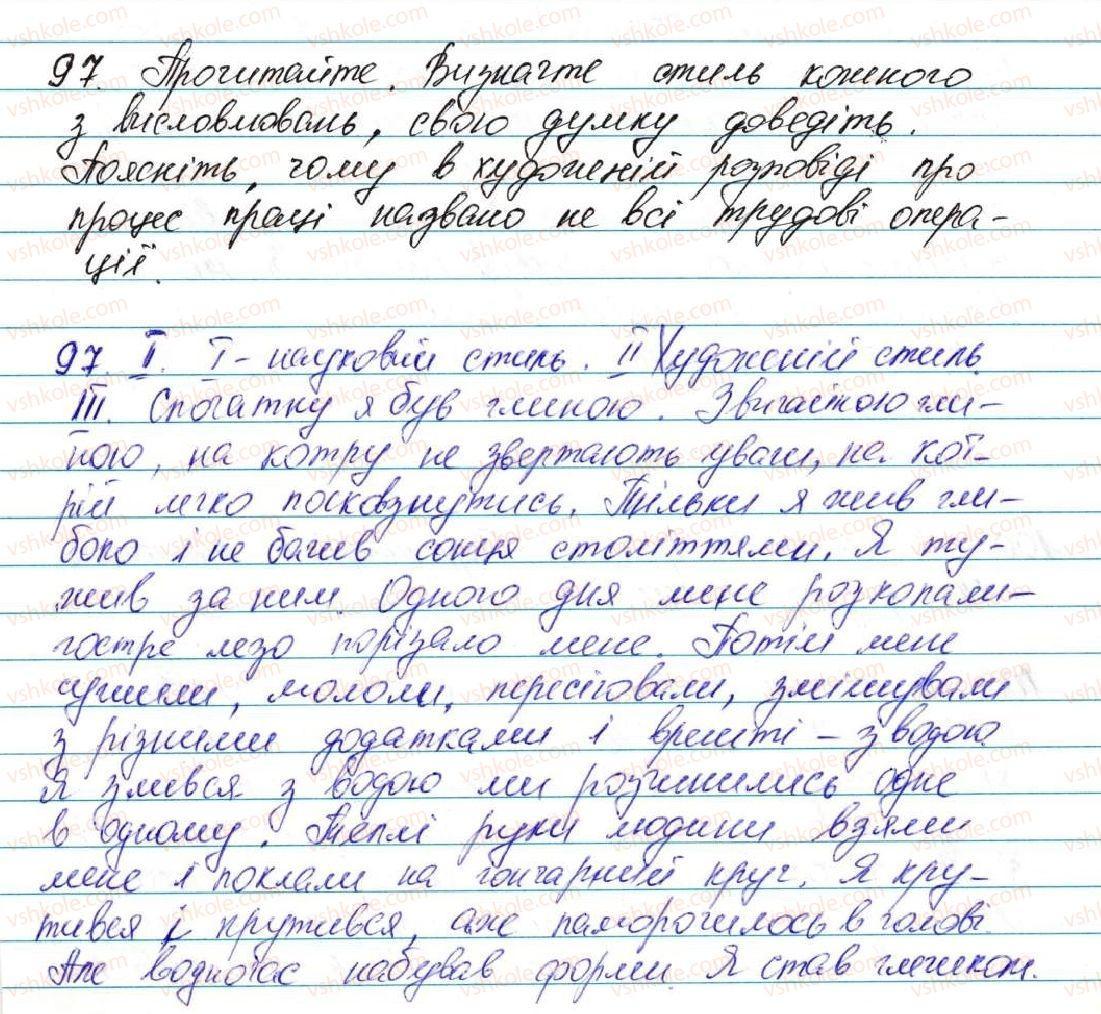 97. Прочитайте. Визначте стиль кожного
з висловлювань, свою думку доведіть.
Поясніть, чому в художній розповіді про
процес праці названо не всі трудові опера-
ції.
97. I. I - науковий стиль. II Художній стиль.
III. Спочатку я був глиною. Звичайною гли-
ною, на котру не звертають уваги, на кот-
рій легко посковзнутись. Тільки я жив гли-
боко і не бачив сонця століттями. Я ту-
жив за ним. Одного дня мене розкопали -
гостре лезо порізало мене. Потім мене
сушили, мололи, пересіювали, змішували
з різними додатками і врешті - з водою.
Я злився з водою ми розчинились одне
в одному. Теплі руки людини взяли
мене і поклали на гончарний круг. Я кру-
тився і пружився, аже паморочилось в голові.
Але водночас набував форми. Я став глечиком.